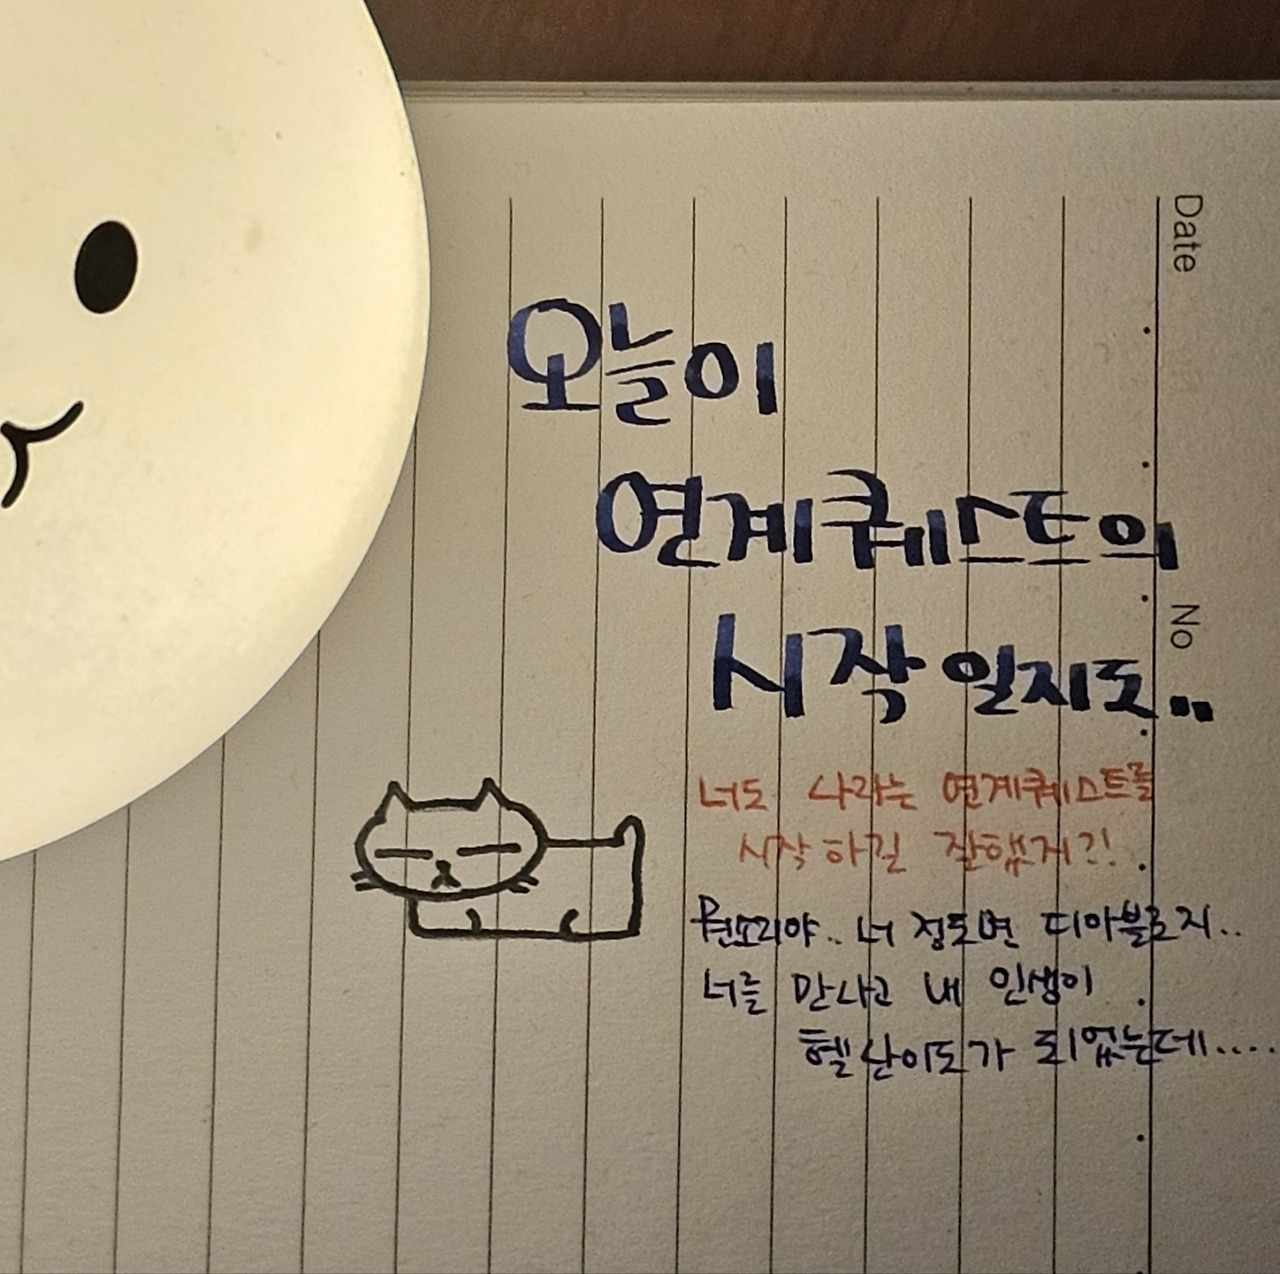 오늘이
연계퀘스트의
시작일지도..
너도 나라는 연계퀘스트를
시작하길 잘했지?!
뭔소리야.. 너 정도면 디아블로지..
너를 만나고 내 인생이
헬난이도가 되었는데....
Date
No